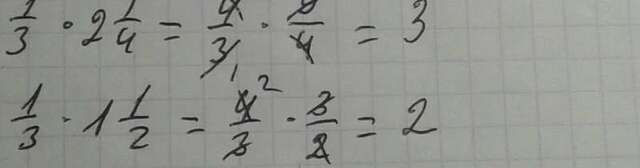 1/3 · 2 1/4 = 4/3 · 9/4 = 3
1/3 · 1 1/2 = 4/3 · 3/2 = 2